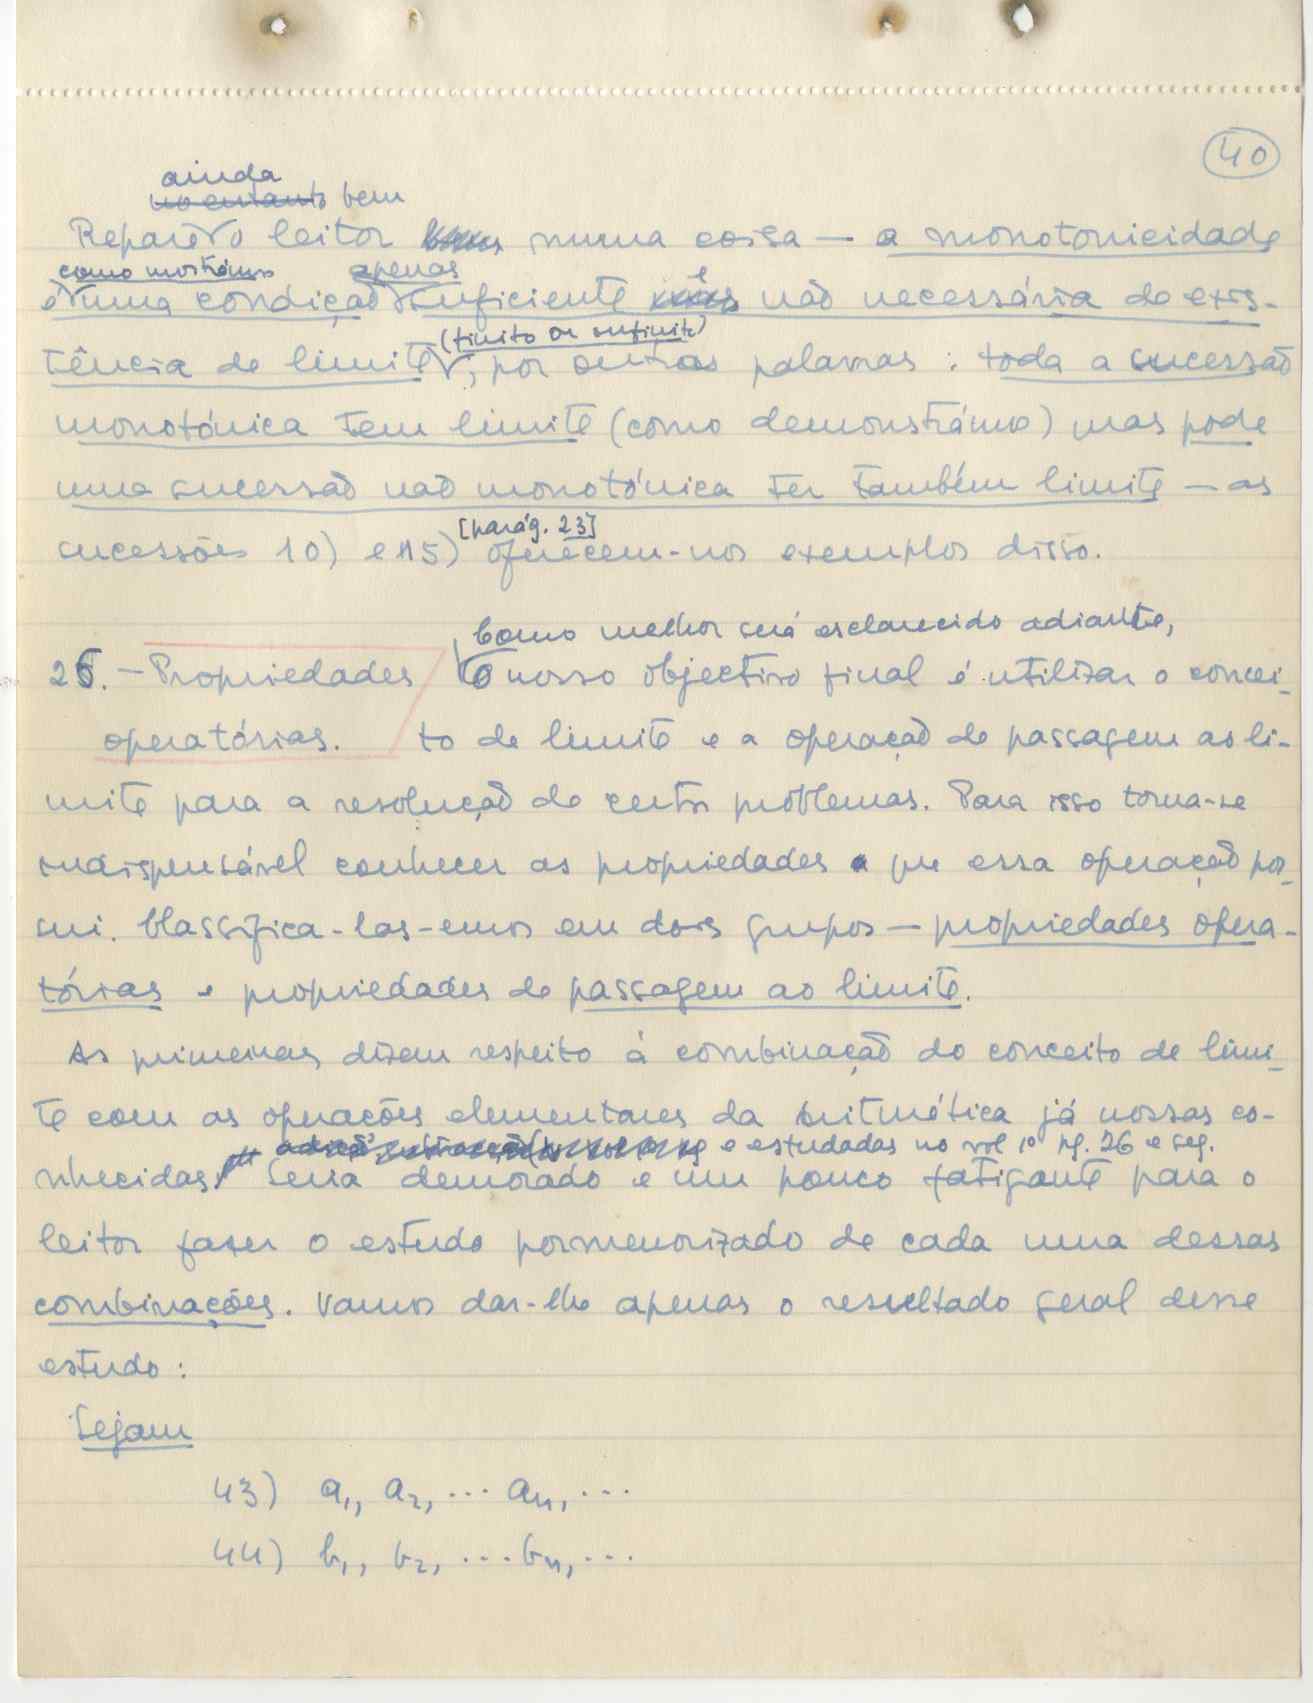 40
ainda
no entanto bem
Repare o leitor numa coisa — a monotonicidade
como mostrámos apenas
é uma condição suficiente e não necessária de exis-
(finito ou infinito)
tência de limite; por outras palavras: toda a sucessão
monotónica tem limite (como demonstrámos) mas pode
uma sucessão não monotónica ter também limite — as
[parág. 23]
sucessões 10) e 15) oferecem-nos exemplos disso.
Como melhor será esclarecido adiante,
25. — Propriedades O nosso objectivo final é utilizar o concei-
operatórias. to de limite e a operação de passagem ao li-
mite para a resolução de certos problemas. Para isso torna-se
indispensável conhecer as propriedades que essa operação pos-
sui. Classifica-las-emos em dois grupos — propriedades opera-
tórias e propriedades de passagem ao limite.
As primeiras dizem respeito à combinação do conceito de limi-
te com as operações elementares da aritmética já nossas co-
e estudadas no vol 1º pg. 26 e seg.
nhecidas. Seria demorado e um pouco fatigante para o
leitor fazer o estudo pormenorizado de cada uma dessas
combinações. Vamos dar-lhe apenas o resultado geral desse
estudo:
Sejam
43) a₁, a₂, ... aₙ, ...
44) b₁, b₂, ... bₙ, ...